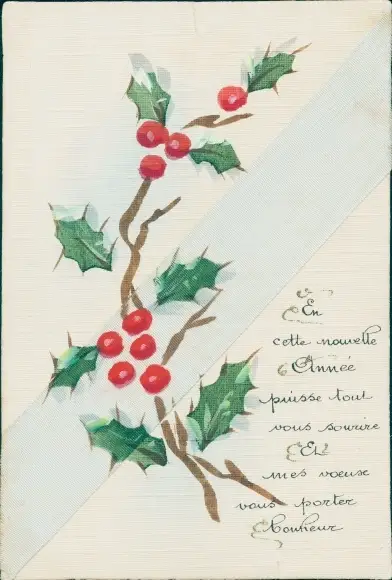 En
cette nouvelle
Année
puisse tout
vous sourire
Et
mes voeux
vous porter
bonheur